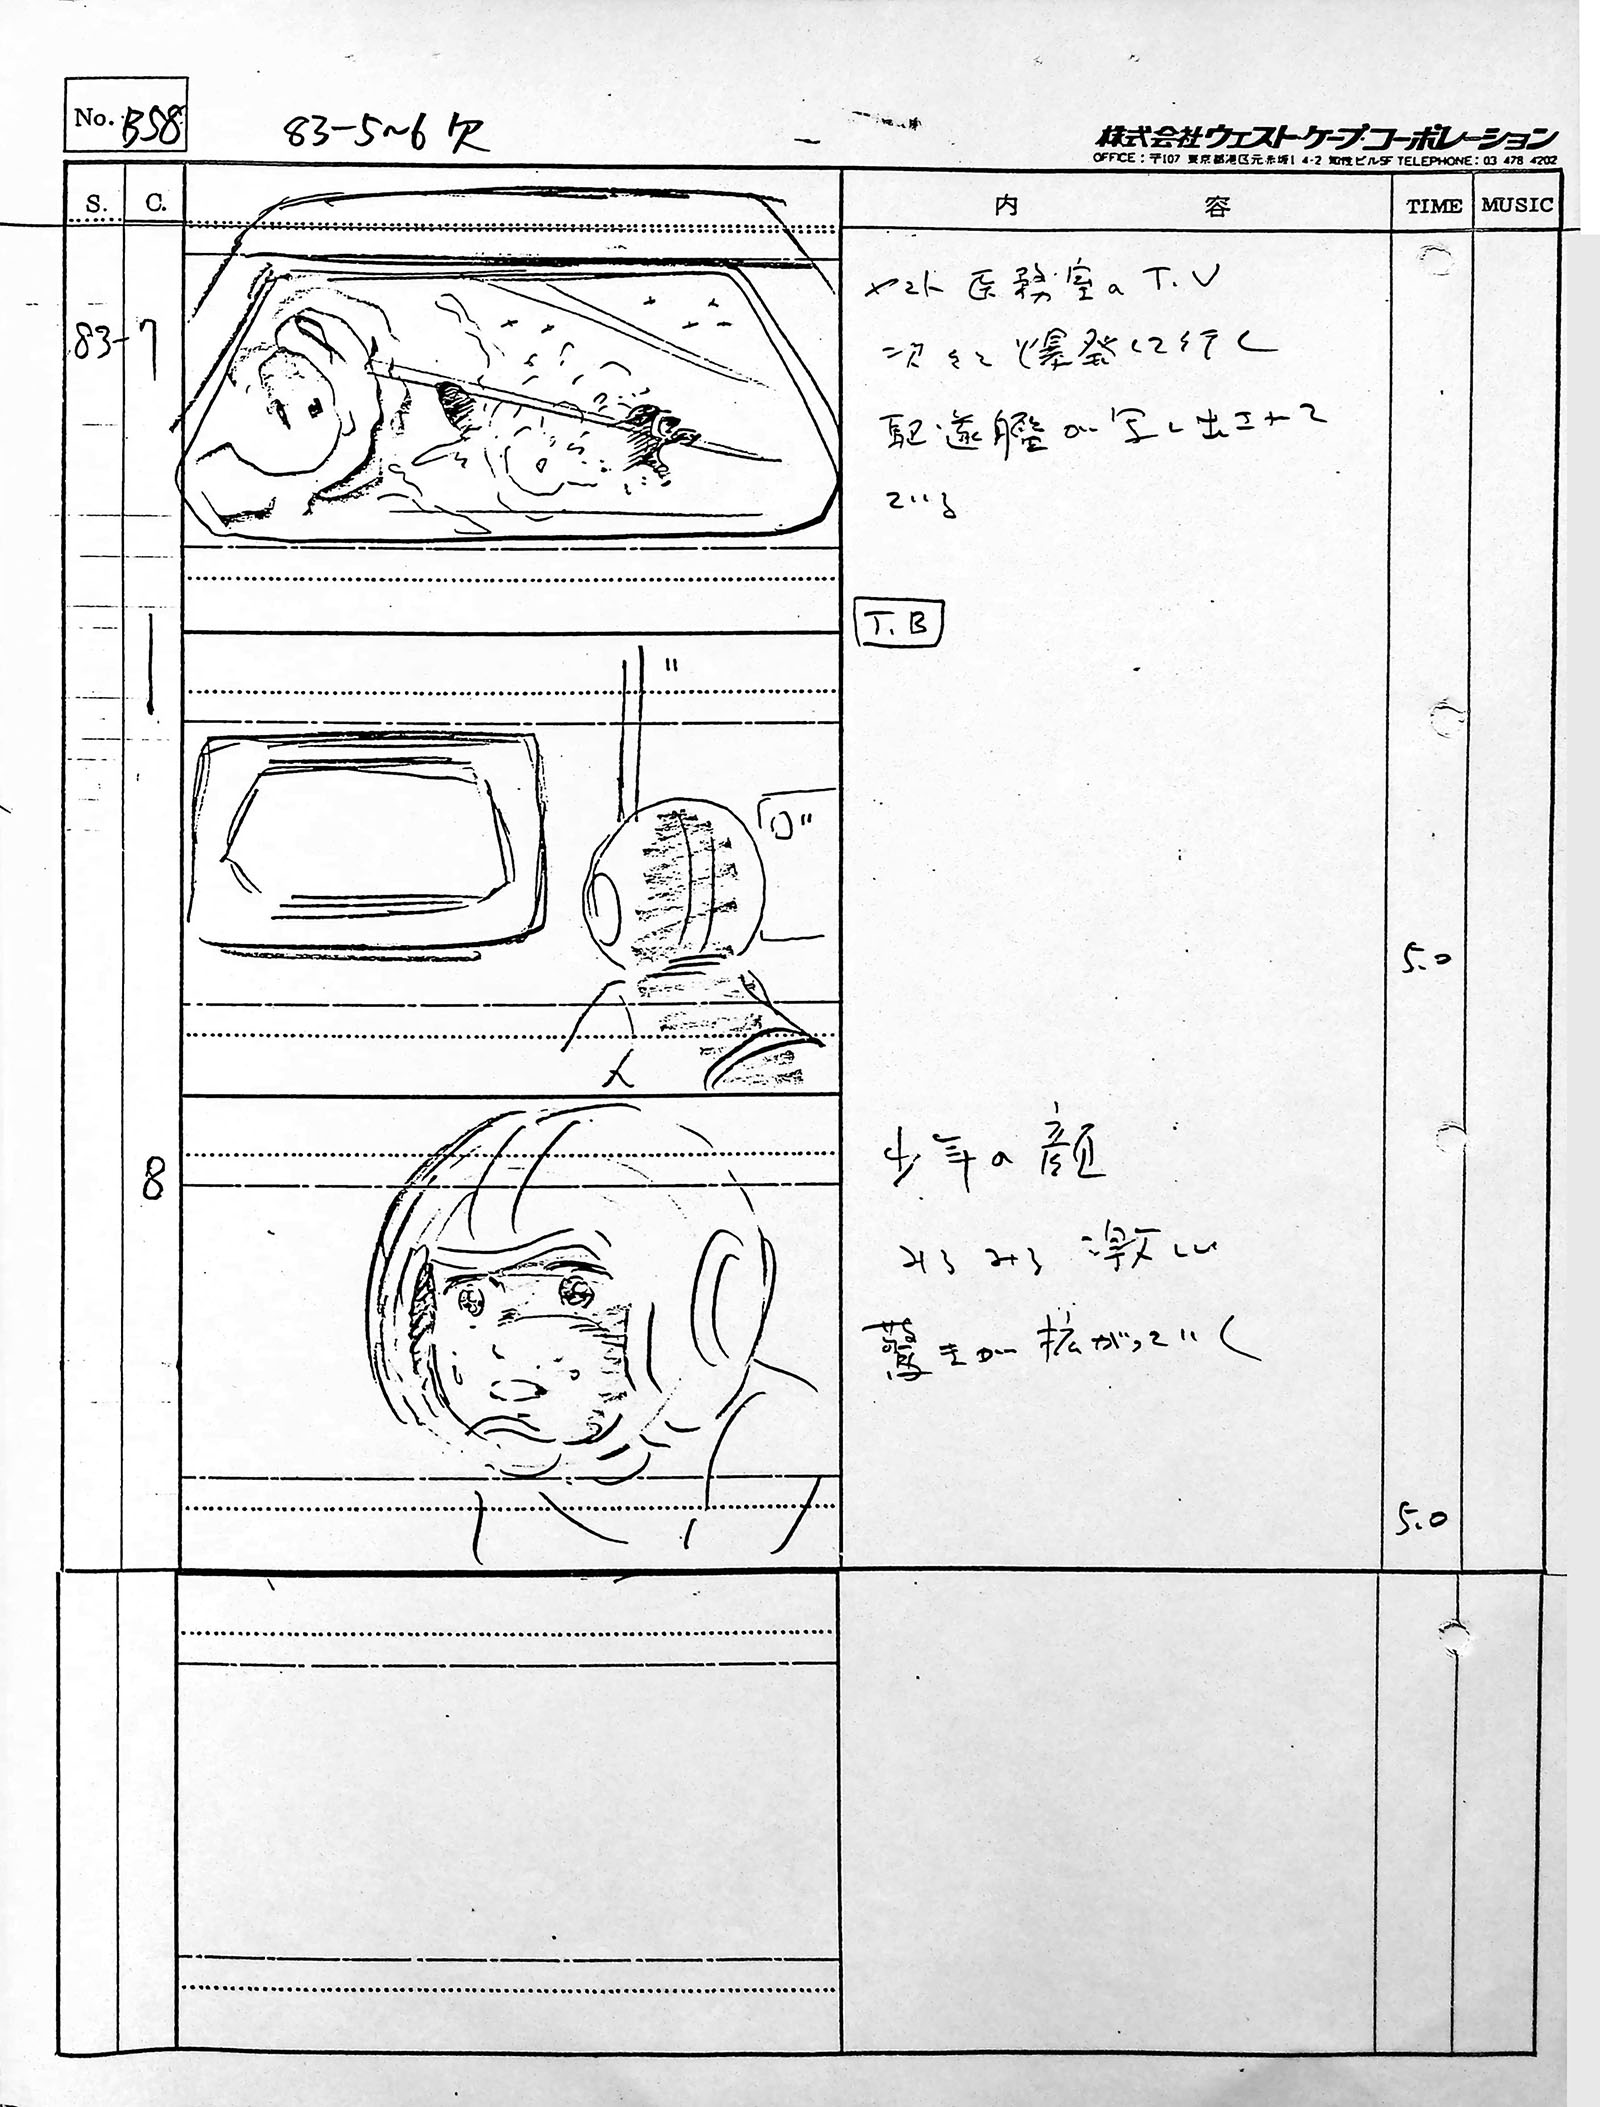 No. B58
83-5~6欠
株式会社ウエスト・ケープ・コーポレーション
OFFICE:〒107 東京都港区元赤坂1 4-2 知性ビル5F TELEPHONE:03 478 4202
S. C. 内容 TIME MUSIC
83-7
ヤマト医務室のT.V
次々と爆発して行く
駆逐艦が写し出されて
ている
T.B
5.0
8
少年の顔
みるみる激しい
驚きが拡がっていく
5.0